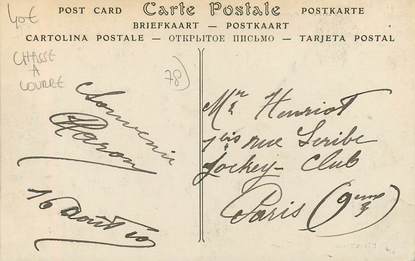 40€
POST CARD Carte Postale POSTKARTE
BRIEFKAART – POSTKAART
CARTOLINA POSTALE – ОТКРЫТОЕ ПИСЬМО – TARJETA POSTAL
CHASSE
A
COURRE
78)
Souvenir
16 août 10
Mr Henriot
1bis rue Scribe
Jockey-Club
Paris (9eme)